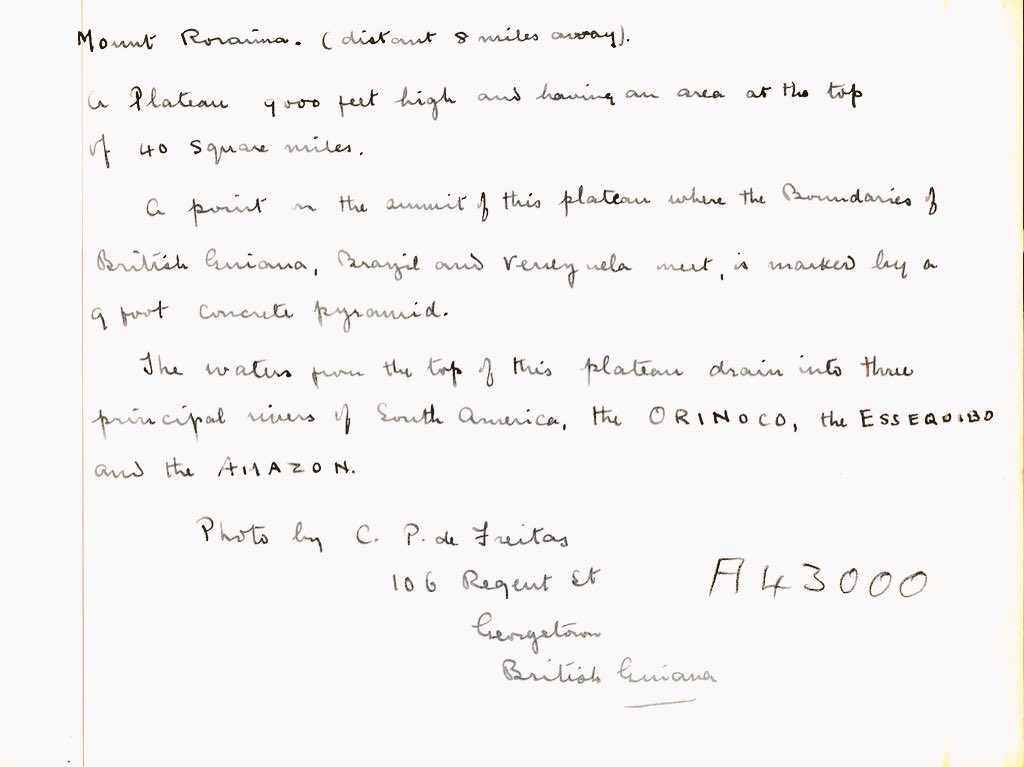 Mount Roraima. (distant 8 miles away).
A Plateau 9000 feet high and having an area at the top
of 40 Square miles.
A point on the summit of this plateau where the Boundaries of
British Guiana, Brazil and Venezuela meet, is marked by a
9 foot concrete pyramid.
The waters from the top of this plateau drain into three
principal rivers of South America, the ORINOCO, the ESSEQUIBO
and the AMAZON.
Photo by C. P. de Freitas
106 Regent St
A43000
Georgetown
British Guiana